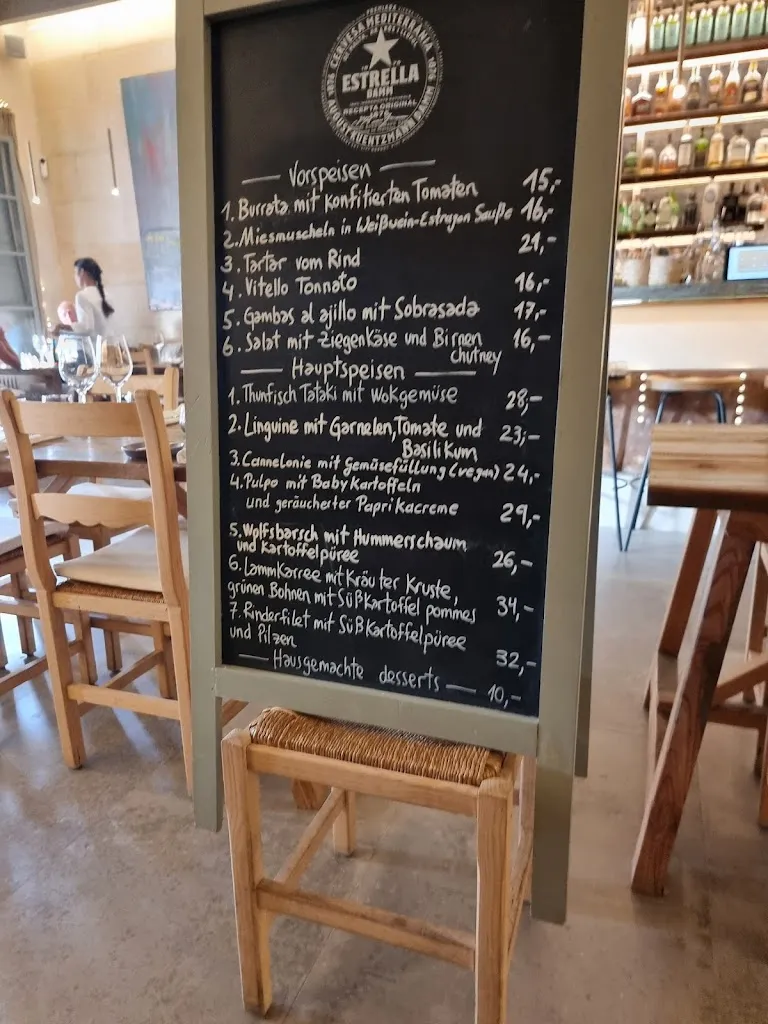 CERVESA MEDITERRÀNIA
1876
ESTRELLA
DAMM
RECEPTA ORIGINAL
AUGUST KUENTZMANN DAMM
Vorspeisen
1. Burrata mit Konfitierten Tomaten 15,-
2. Miesmuscheln in Weißwein-Estragon Sauße 16,-
3. Tartar vom Rind 21,-
4. Vitello Tonnato 16,-
5. Gambas al ajillo mit Sobrasada 17,-
6. Salat mit Ziegenkäse und Birnen 16,-
chutney
Hauptspeisen
1. Thunfisch Tataki mit Wokgemüse 28,-
2. Linguine mit Garnelen, Tomate und 23,-
Basilikum
3. Cannelonie mit Gemüsefüllung (vegan) 24,-
4. Pulpo mit Baby Kartoffeln
und geräucherter Paprikacreme 29,-
5. Wolfsbarsch mit Hummerschaum
und Kartoffelpüree 26,-
6. Lammkarree mit Kräuter Kruste,
grünen Bohnen mit Süßkartoffel pommes 34,-
7. Rinderfilet mit Süßkartoffelpüree
und Pilzen 32,-
Hausgemachte desserts 10,-